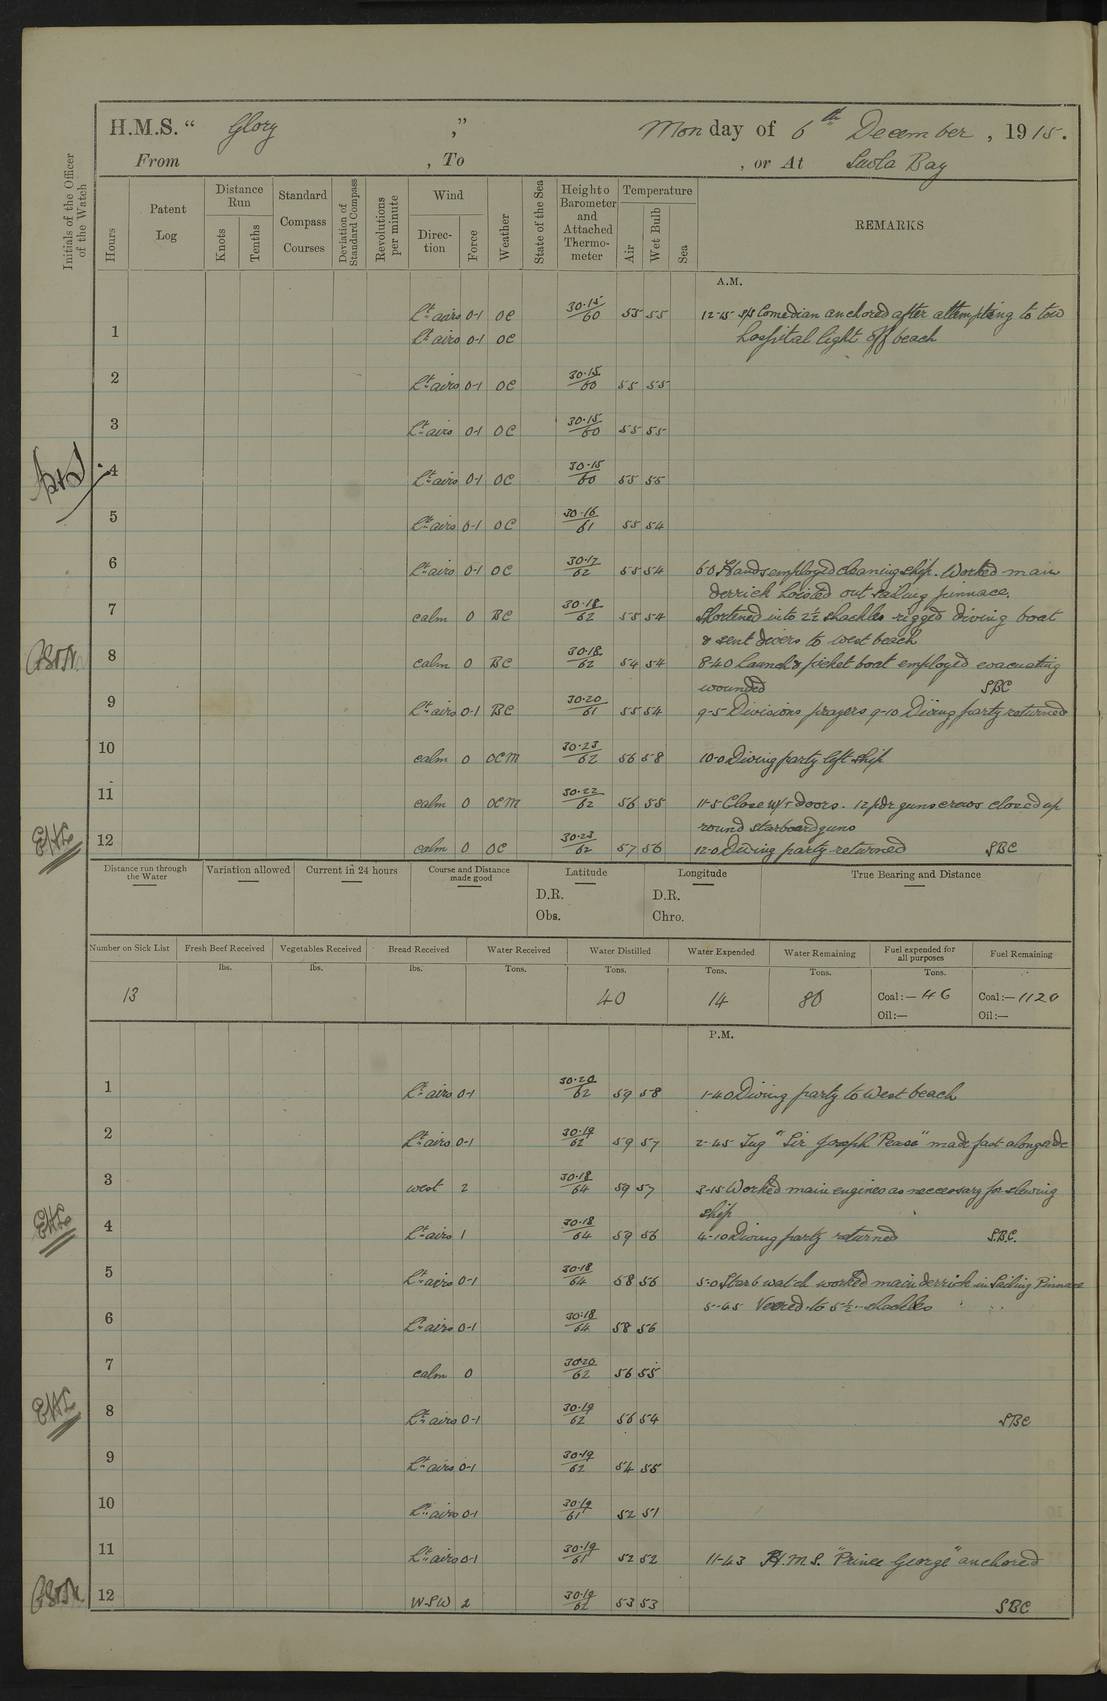 H.M.S. “ Glory ,”
Monday of 6th December , 1915.
From , To , or At Suvla Bay
Initials of the Officer of the Watch
Hours
Patent Log
Distance Run
Knots
Tenths
Standard Compass Courses
Deviation of Standard Compass
Revolutions per minute
Wind
Direction
Force
Weather
State of the Sea
Height o Barometer and Attached Thermometer
Temperature
Air
Wet Bulb
Sea
REMARKS
A.M.
Lt airs 0-1 OC 30·15/60 55 55 12-15 s/s Comedian anchored after attempting to tow
1 Lt airs 0-1 OC hospital light off beach
2 Lt airs 0-1 OC 30·15/60 55 55
3 Lt airs 0-1 OC 30·15/60 55 55
4 Lt airs 0-1 OC 30·15/60 55 55
5 Lt airs 0-1 OC 30·16/61 55 54
6 Lt airs 0-1 OC 30·17/62 55 54 6-0 Hands employed cleaning ship. Worked main
derrick hoisted out sailing pinnace.
7 calm 0 BC 30·18/62 55 54 Shortened into 2½ shackles rigged diving boat
& sent divers to west beach
8 calm 0 BC 30·18/62 54 54 8-40 Launch & picket boat employed evacuating
wounded SBC
9 Lt airs 0-1 BC 30·20/61 55 54 9-5 Divisions prayers 9-10 Diving party returned
10 calm 0 OCM 30·23/62 56 58 10-0 Diving party left ship
11 calm 0 OCM 30·22/62 56 55 11-5 Close W/T doors. 12 pdr guns crews closed up
round starboard guns
12 calm 0 OC 30·23/62 57 56 12-0 Diving party returned SBC
Distance run through the Water
Variation allowed
Current in 24 hours
Course and Distance made good
Latitude
Longitude
True Bearing and Distance
D.R. D.R.
Obs. Chro.
Number on Sick List
Fresh Beef Received
Vegetables Received
Bread Received
Water Received
Water Distilled
Water Expended
Water Remaining
Fuel expended for all purposes
Fuel Remaining
lbs. lbs. lbs. Tons. Tons. Tons. Tons. Tons.
13 40 14 80 Coal:— 46 Coal:— 1120
Oil:— Oil:—
P.M.
1 Lt airs 0-1 30·20/62 59 58 1-40 Diving party to West beach
2 Lt airs 0-1 30·19/62 59 57 2-45 Tug "Sir Joseph Pease" made fast alongside
3 west 2 30·18/64 59 57 3-15 Worked main engines as neccessary for slewing
ship
4 Lt airs 1 30·18/64 59 56 4-10 Diving party returned S.B.C.
5 Lt airs 0-1 30·18/64 58 56 5-0 Starb watch worked main derrick in Sailing Pinnace
5-45 Veered to 5½ shackles
6 Lt airs 0-1 30·18/64 58 56
7 calm 0 30·20/62 56 55
8 Lt airs 0-1 30·19/62 56 54 SBC
9 Lt airs 0-1 30·19/62 54 55
10 Lt airs 0-1 30·19/61 52 51
11 Lt airs 0-1 30·19/61 52 52 11-43 H.M.S. "Prince George" anchored
12 WSW 2 30·19/62 53 53 SBC